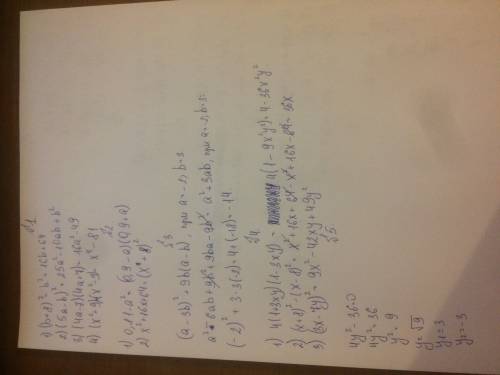 √1
1) (b+8)² = b² + 16b + 64
2) (5a-b)² = 25a² - 10ab + b²
3) (4a-7)(4a+7) = 16a² - 49
4) x⁴ - 81
√2
1) (0,9-a)(0,9+a)
2) x² + 16x + 64 = (x² + 8)²
√3
(a-3b)² + 9b(a-b), при a=-2, b=3
a² - 6ab + 9b² + 9ba - 9b² = a² + 3ab, при a=-2, b=3:
(-2)² + 3·3·(-2) = 4 + (-18) = -14
√4
1) 4(1+3xy)(1-3xy) = 4(1-9x²y²) = 4 - 36x²y²
2) (x+8)² - (x-8)² = x² + 16x + 64 - x² + 16x - 64 = 36x
3) = 9x² - 42xy + 49y²
√5
4y² - 36 = 0
4y² = 36
y² = 9
y = √9
y₁ = 3
y₂ = -3